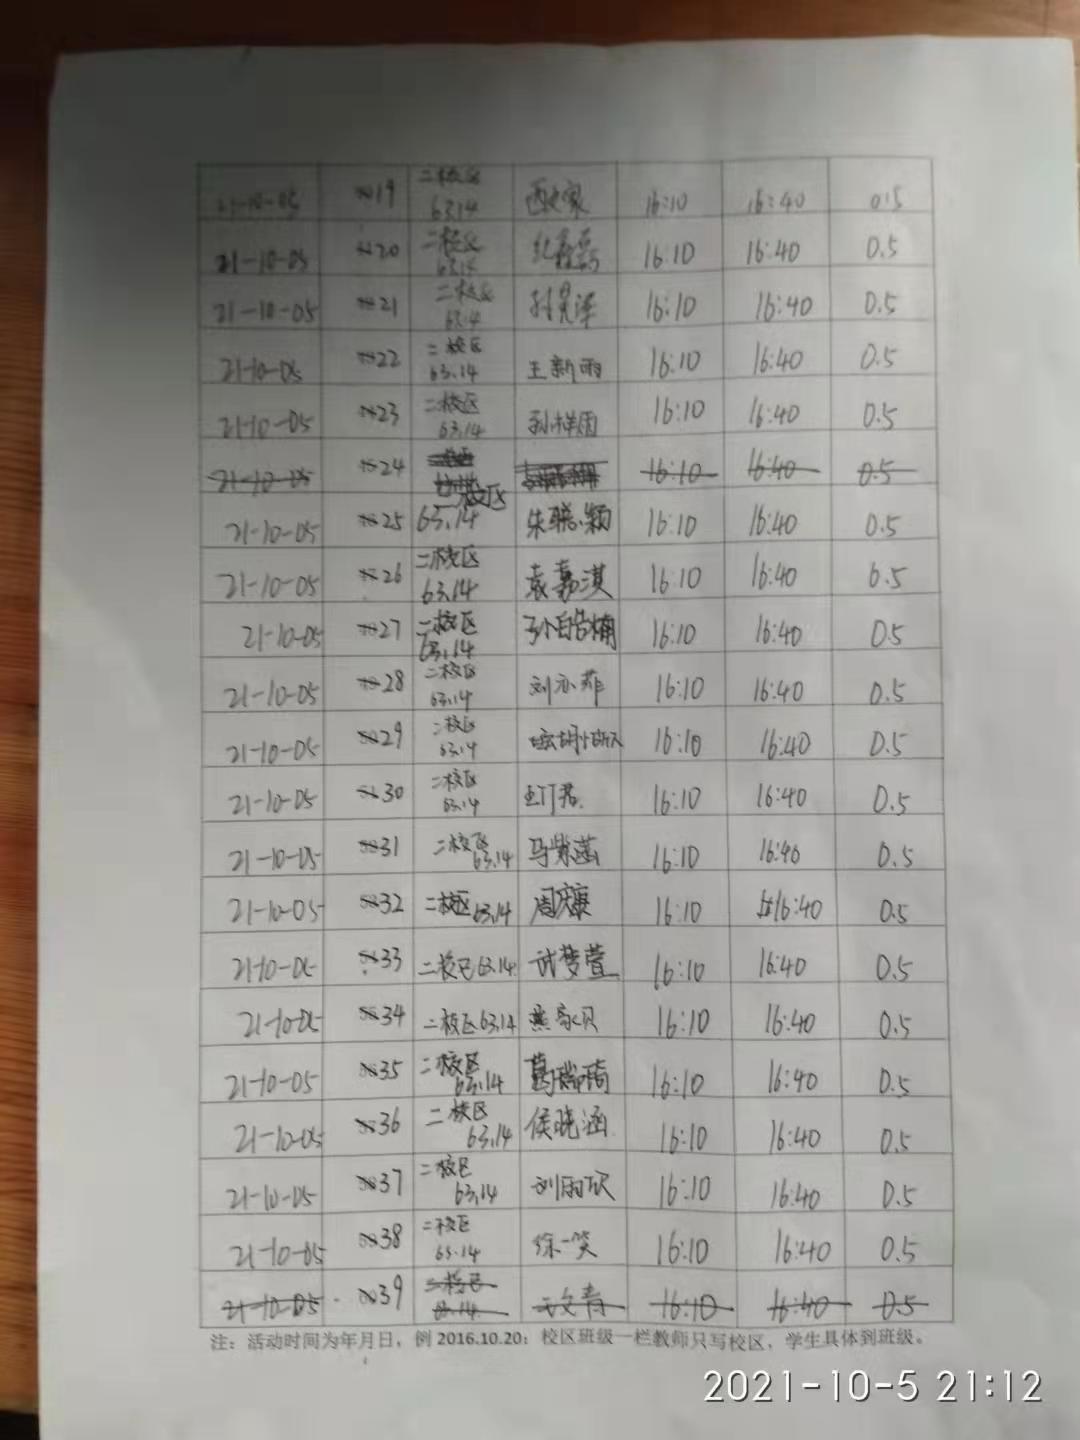 21-10-05 19 二校区 63.14 16:10 16:40 0.5
21-10-05 20 二校区 63.14 16:10 16:40 0.5
21-10-05 21 二校区 63.14 16:10 16:40 0.5
21-10-05 22 二校区 63.14 王新雨 16:10 16:40 0.5
21-10-05 23 二校区 63.14 孙祥雨 16:10 16:40 0.5
21-10-05 24 16:10 16:40 0.5
21-10-05 25 二校区 63.14 朱晓颖 16:10 16:40 0.5
21-10-05 26 二校区 63.14 袁嘉淇 16:10 16:40 0.5
21-10-05 27 二校区 63.14 16:10 16:40 0.5
21-10-05 28 二校区 63.14 刘亦菲 16:10 16:40 0.5
21-10-05 29 二校区 63.14 16:10 16:40 0.5
21-10-05 30 二校区 63.14 16:10 16:40 0.5
21-10-05 31 二校区 63.14 马紫菡 16:10 16:40 0.5
21-10-05 32 二校区 63.14 周庆康 16:10 16:40 0.5
21-10-05 33 二校区 63.14 16:10 16:40 0.5
21-10-05 34 二校区 63.14 燕家贝 16:10 16:40 0.5
21-10-05 35 二校区 63.14 葛瑞琦 16:10 16:40 0.5
21-10-05 36 二校区 63.14 侯晓涵 16:10 16:40 0.5
21-10-05 37 二校区 63.14 刘雨欣 16:10 16:40 0.5
21-10-05 38 二校区 63.14 徐一笑 16:10 16:40 0.5
21-10-05 39 二校区 63.14 16:10 16:40 0.5
注：活动时间为年月日，例 2016.10.20；校区班级一栏教师只写校区，学生具体到班级。
2021-10-5 21:12